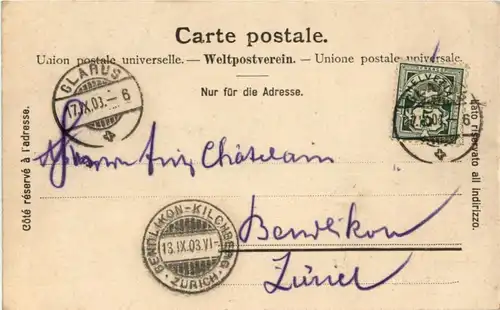 Carte postale.
Union postale universelle. — Weltpostverein. — Unione postale universale.
Nur für die Adresse.
Côté réservé à l'adresse.
lato riservato all indirizzo.
GLARUS
17.IX.03.-6
Châtelain
Bendlikon
Zürich
BENDLIKON-KILCHBERG
18.IX.03.VI-
ZÜRICH